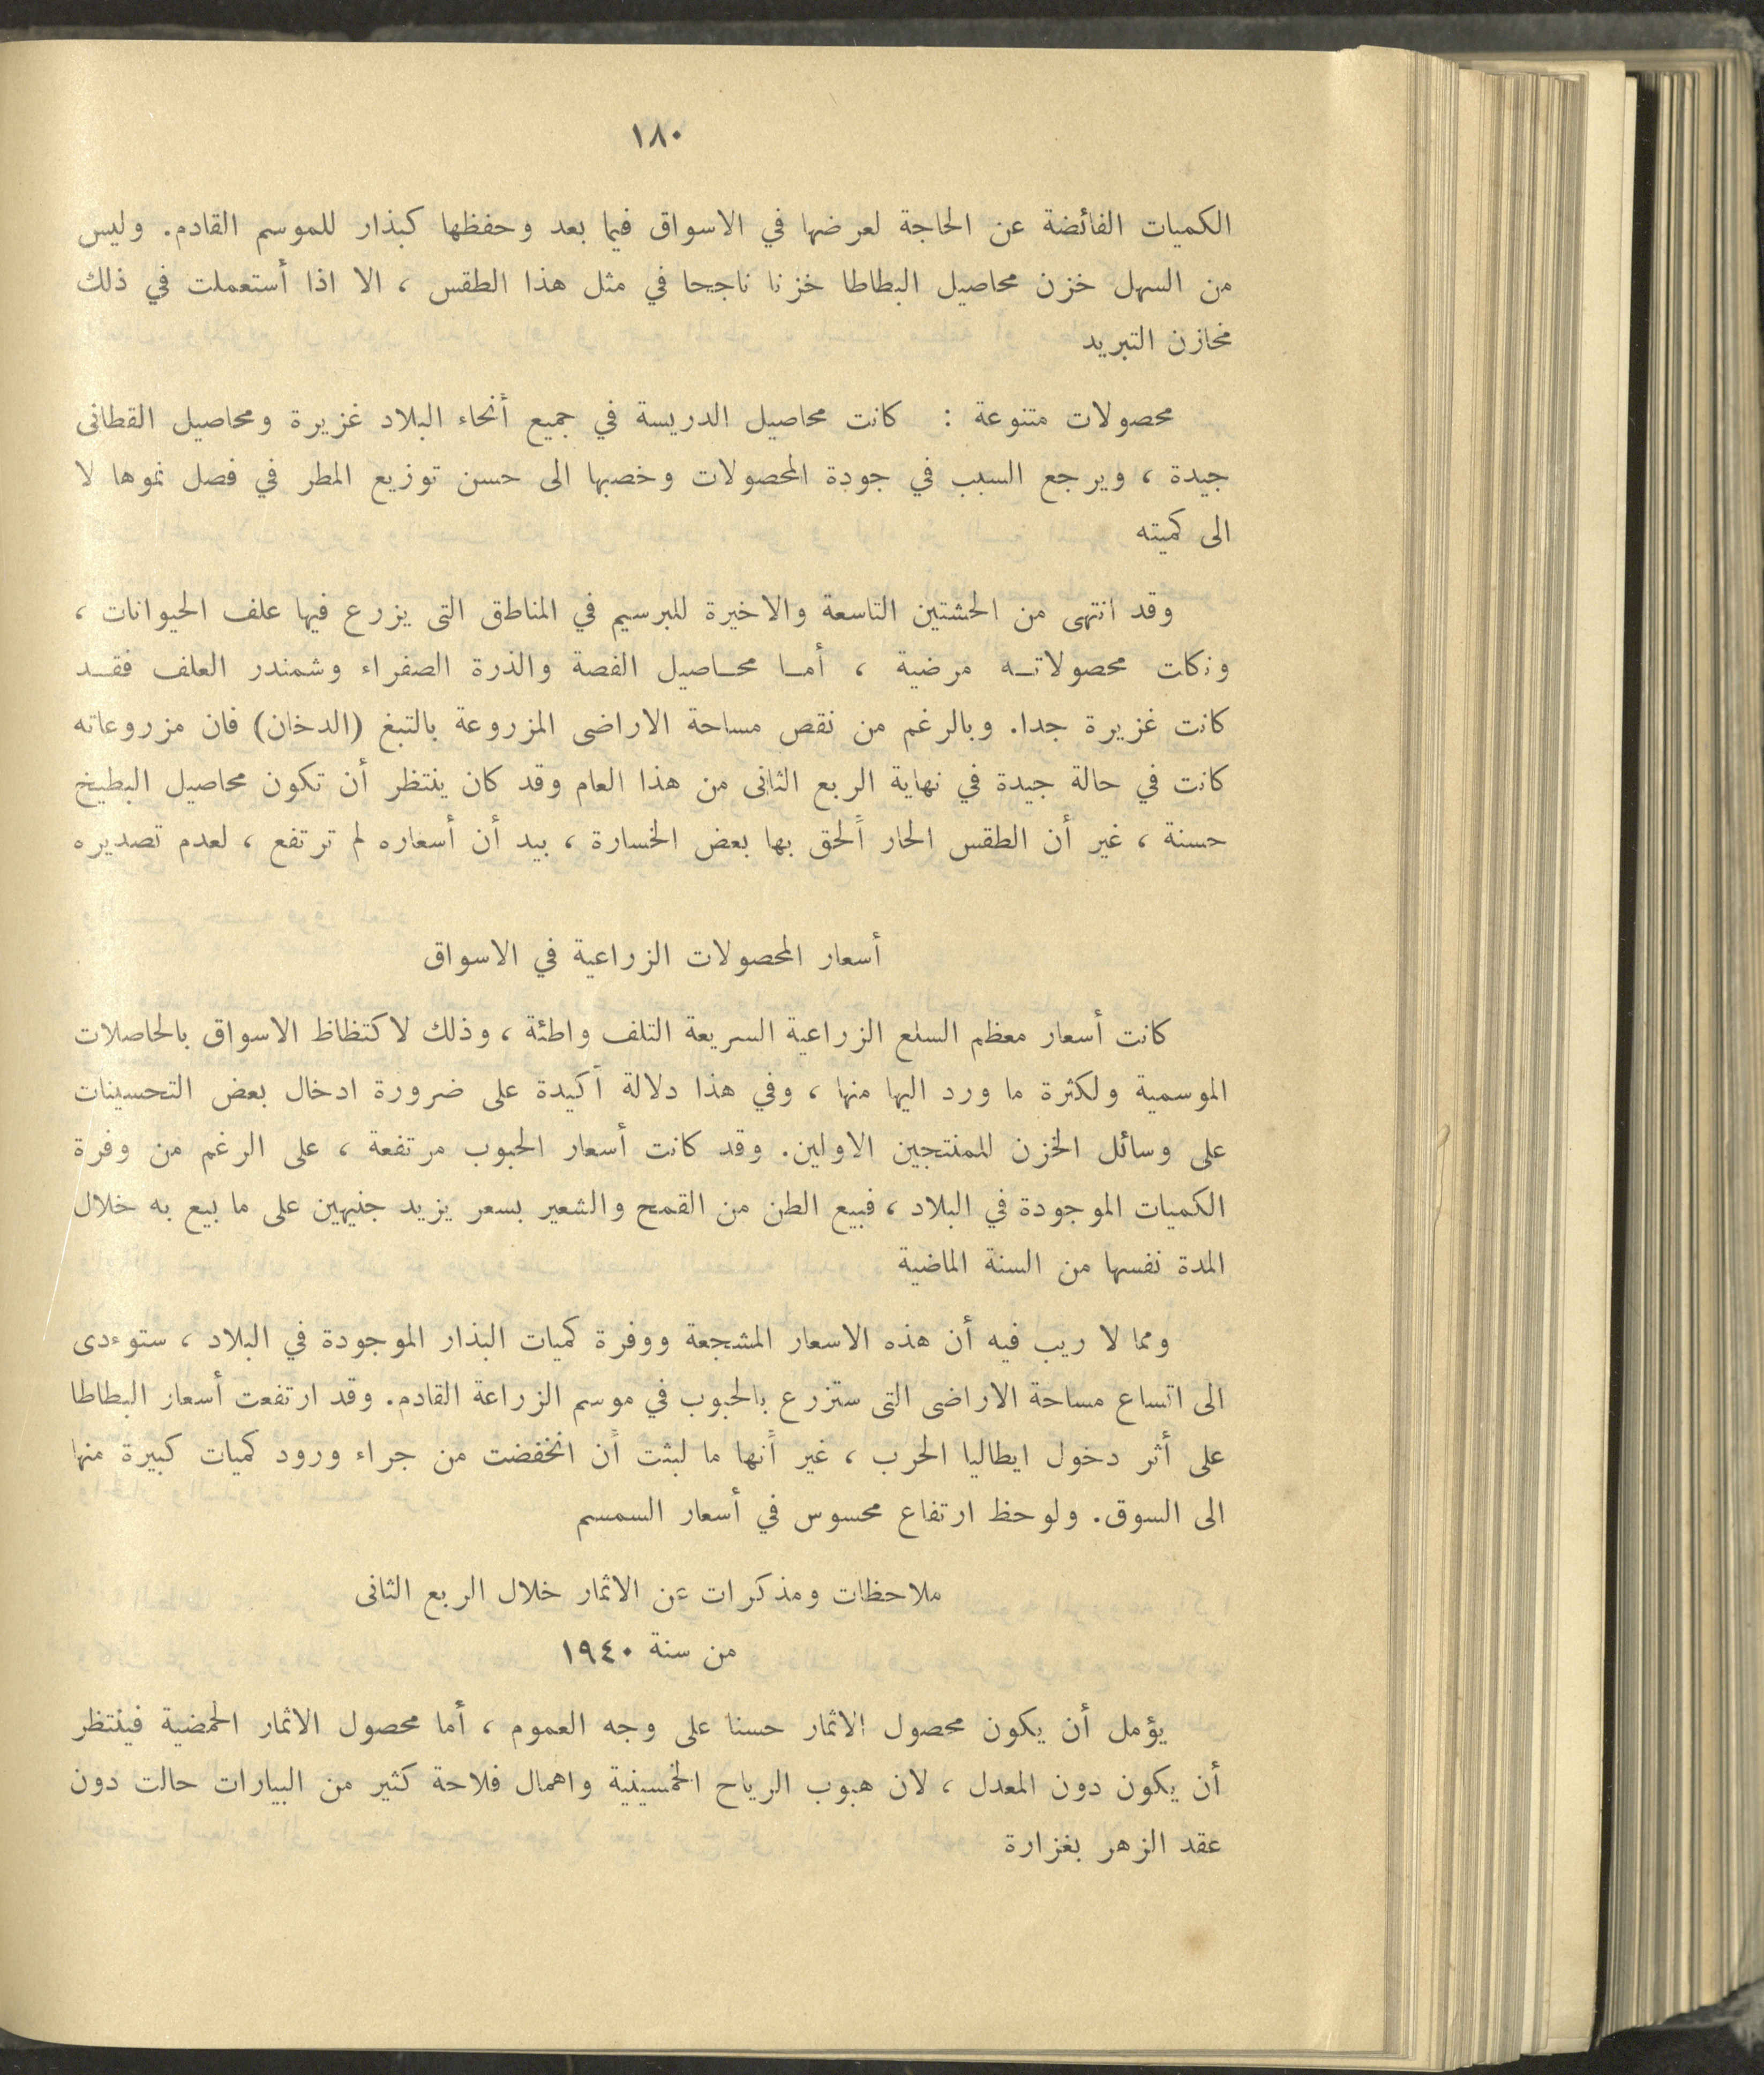 ١٨٠
الكميات الفائضة عن الحاجة لعرضها في الاسواق فيما بعد وحفظها كبذار للموسم القادم. وليس
من السهل خزن محاصيل البطاطا خزنا ناجحا في مثل هذا الطقس ، الا اذا أستعملت في ذلك
مخازن التبريد
محصولات متنوعة : كانت محاصيل الدريسة في جميع أنحاء البلاد غزيرة ومحاصيل القطانى
جيدة ، ويرجع السبب في جودة المحصولات وخصبها الى حسن توزيع المطر في فصل نموها لا
الى كميته
وقد انتهى من الحشتين التاسعة والاخيرة للبرسيم في المناطق التى يزرع فيها علف الحيوانات ،
وزكات محصولاته مرضية ، أما محاصيل الفصة والذرة الصفراء وشمندر العلف فقد
كانت غزيرة جدا. وبالرغم من نقص مساحة الاراضى المزروعة بالتبغ (الدخان) فان مزروعاته
كانت في حالة جيدة في نهاية الربع الثانى من هذا العام وقد كان ينتظر أن تكون محاصيل البطيخ
حسنة ، غير أن الطقس الحار ألحق بها بعض الخسارة ، بيد أن أسعاره لم ترتفع ، لعدم تصديره
أسعار المحصولات الزراعية في الاسواق
كانت أسعار معظم السلع الزراعية السريعة التلف واطئة ، وذلك لاكتظاظ الاسواق بالحاصلات
الموسمية ولكثرة ما ورد اليها منها ، وفي هذا دلالة أكيدة على ضرورة ادخال بعض التحسينات
على وسائل الخزن للمنتجين الاولين. وقد كانت أسعار الحبوب مرتفعة ، على الرغم من وفرة
الكميات الموجودة في البلاد ، فبيع الطن من القمح والشعير بسعر يزيد جنيهين على ما بيع به خلال
المدة نفسها من السنة الماضية
ومما لا ريب فيه أن هذه الاسعار المشجعة ووفرة كميات البذار الموجودة في البلاد ، ستوءدى
الى اتساع مساحة الاراضى التى ستزرع بالحبوب في موسم الزراعة القادم. وقد ارتفعت أسعار البطاطا
على أثر دخول ايطاليا الحرب ، غير أنها ما لبثت أن انخفضت من جراء ورود كميات كبيرة منها
الى السوق. ولوحظ ارتفاع محسوس في أسعار السمسم
ملاحظات ومذكرات عن الاثمار خلال الربع الثانى
من سنة ١٩٤٠
يؤمل أن يكون محصول الاثمار حسنا على وجه العموم ، أما محصول الاثمار الحمضية فينتظر
أن يكون دون المعدل ، لان هبوب الرياح الخمسينية واهمال فلاحة كثير من البيارات حالت دون
عقد الزهر بغزارة